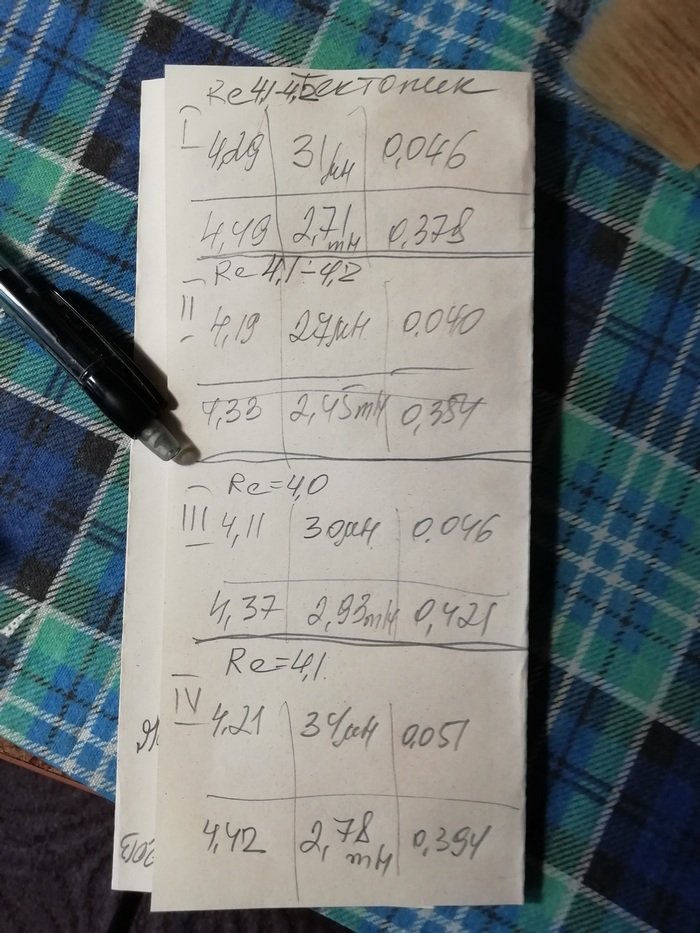 Re 4,1-4,2 Тектоник
I 4,29 31μH 0,046
4,49 2,71 mH 0,378
Re 4,1-4,2
II 4,19 27μH 0,040
4,33 2,45mH 0,354
Re=4,0
III 4,11 30μH 0.046
4,37 2,93mH 0,421
Re=4,1
IV 4,21 34μH 0,051
4,42 2,78 mH 0,394